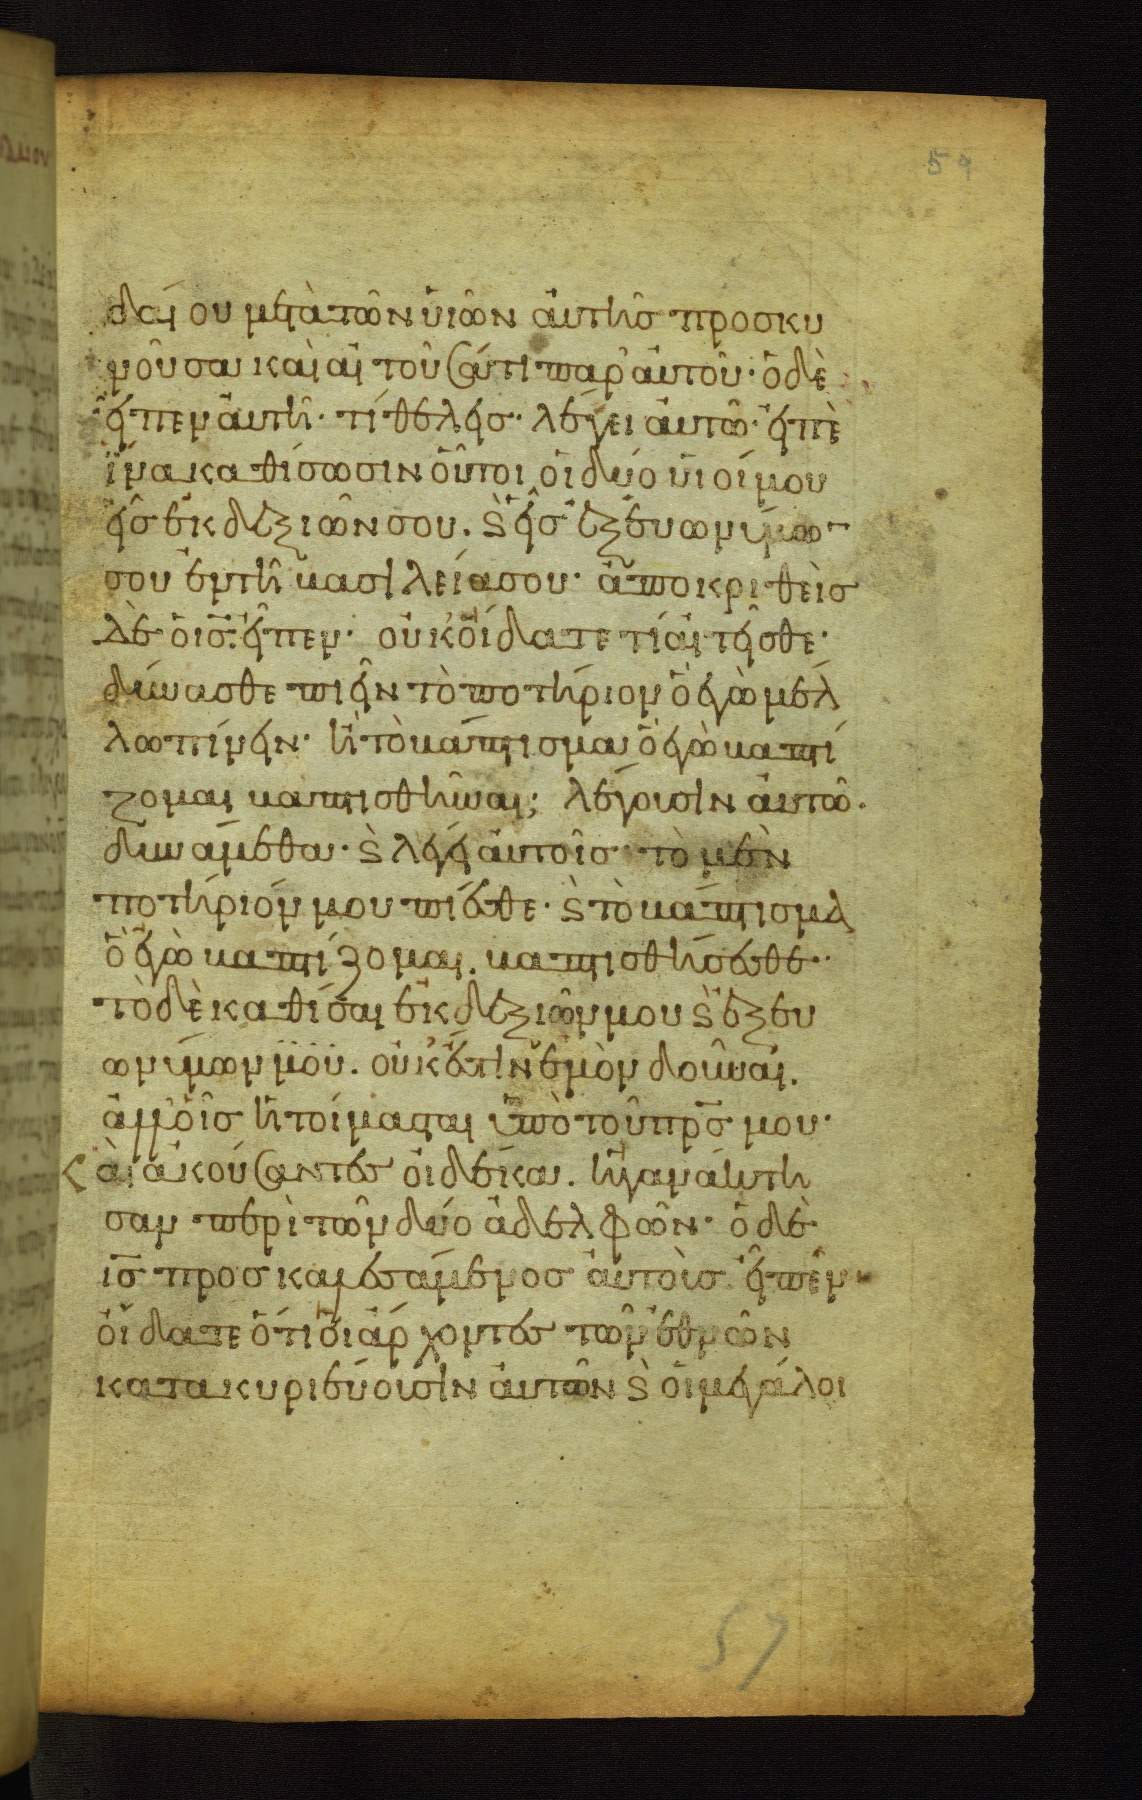 59
δαίου μετὰ τῶν ὑιῶν ἀυτῆς προσκυ
νοῦσα καὶ αἰτοῦσά τι παρ' ἀυτοῦ· ὁ δὲ
εἶπεν ἀυτῆ· τί θέλεις· λέγει ἀυτῶ· εἰπὲ
ἵνα καθίσωσιν οὗτοι οἱ δύο ὑιοί μου
εἷς ἐκ δεξιῶν σου. ϗ εἷς ἐξ ἐυωνύμων
σου ἐν τῆ βασιλεία σου· ἀποκριθεὶς
δὲ ὁ ις̅ εἶπεν· οὐκ οἴδατε τί αἰτεῖσθε·
δύνασθε πιεῖν τὸ ποτήριον ὃ ἐγὼ μέλ
λω πίνειν· ἢ τὸ βάπτισμα ὃ ἐγὼ βαπτί
ζομαι βαπτισθῆναι; λέγουσιν ἀυτῶ·
δυνάμεθα· ϗ λέγει ἀυτοῖς· τὸ μὲν
ποτήριόν μου πίεσθε· ϗ τὸ βάπτισμα
ὃ ἐγὼ βαπτίζομαι. βαπτισθήσεσθε·
τὸ δὲ καθίσαι ἐκ δεξιῶν μου ϗ ἐξ ἐυ
ωνύμων μου. οὐκ ἔστιν ἐμὸν δοῦναι.
ἀλλ' οἷς ἡτοίμασται ὑπὸ τοῦ πρς̅ μου·
Καὶ ἀκούσαντες οἱ δέκα. ἠγανάκτη
σαν περὶ τῶν δύο ἀδελφῶν· ὁ δὲ
ις̅ προσκαλεσάμενος ἀυτοὺς εἶπεν·
οἴδατε ὅτι οἱ ἄρχοντες τῶν ἐθνῶν
κατακυριεύουσιν ἀυτῶν ϗ οἱ μεγάλοι
57